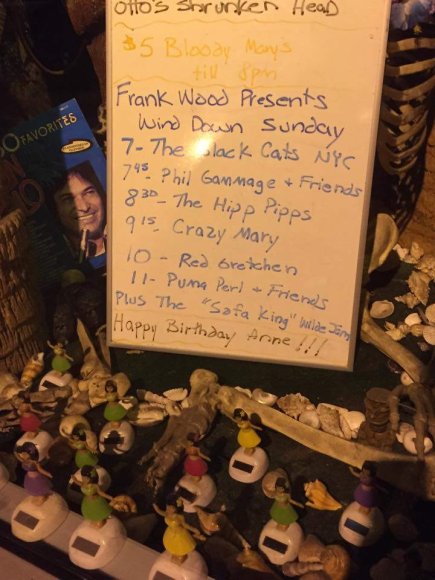 Otto's Shrunken Head
$5 Bloody Mary's
till 8pm
Frank Wood Presents
Wind Down Sunday
7 - The Black Cats NYC
7 45 - Phil Gammage + Friends
8 30 - The Hipp Pipps
9 15 - Crazy Mary
10 - Red Gretchen
11 - Puma Perl + Friends
Plus The "Sofa King" Wilde Jams
Happy Birthday Anne!!!
O FAVORITES